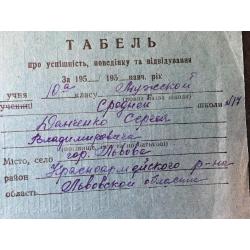 ТАБЕЛЬ
про успішність, поведінку та відвідування
За 195 /195 навч. рік
учня 10а класу Мужской
(повна назва школи)
учениці Средней школи №14
Данченко Сергей
Владимировича
(прізвище, ім'я та по батькові)
Місто, село гор. Львова
район Красноармейского р-на
область Львовской области